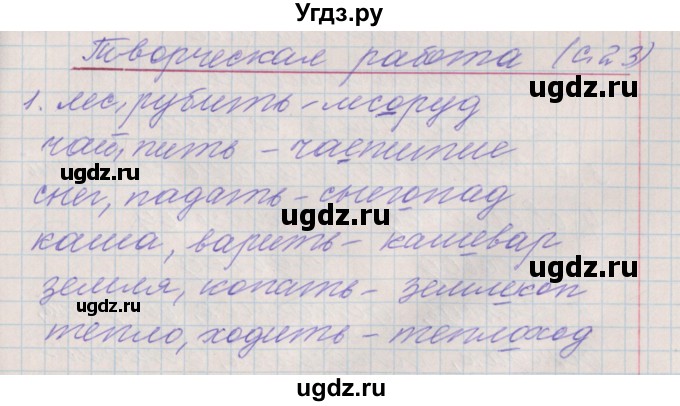 Угдз.ру
Творческая работа (с. 23)
1. лес, рубить - лесоруб
чай, пить - чаепитие
снег, падать - снегопад
каша, варить - кашевар
земля, копать - землекоп
тепло, ходить - теплоход
ugdz.ru
ugdz.ru
ugdz.ru
ugdz.ru
ugdz.ru
ugdz.ru
ugdz.ru